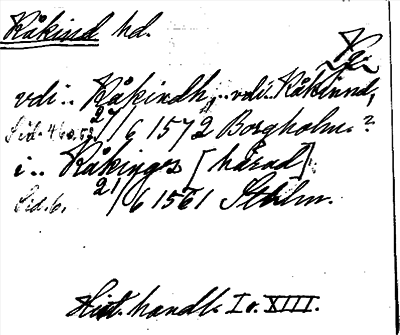 Råkind hd.
Rg.
vdi.. Råkindh,.. vdi. Råkinnd,
Sid. 460.59. 27/6 1572 Borgholm.?
i.. Råkinges [härad].
Sid. 6. 21/6 1561 Sthlm.
Hist. handl. I o. XIII.